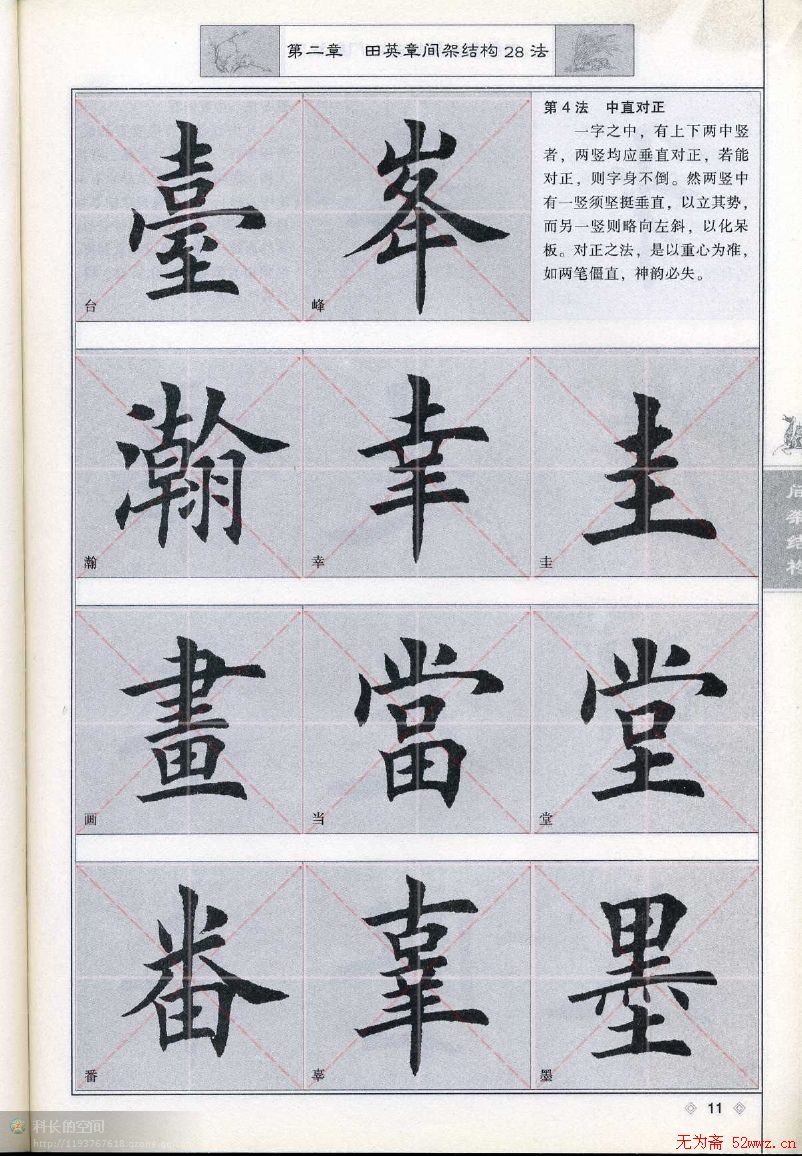 第二章 田英章间架结构28法
第4法 中直对正
一字之中，有上下两中竖
者，两竖均应垂直对正，若能
对正，则字身不倒。然两竖中
有一竖须坚挺垂直，以立其势，
而另一竖则略向左斜，以化呆
板。对正之法，是以重心为准，
如两笔僵直，神韵必失。
臺
台
峯
峰
瀚
瀚
幸
幸
圭
圭
畫
画
當
当
堂
堂
番
番
辜
辜
墨
墨
间架结构
11
科长的空间
无为斋 52wwz.cn